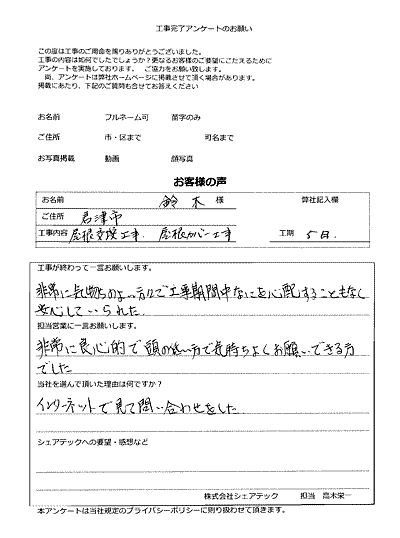 工事完了アンケートのお願い
この度は工事のご用命を賜りありがとうございました。
工事の内容は如何でしたでしょうか?更なるお客様のご要望にこたえるために
アンケートを実施しております。 ご協力をお願い致します。
尚、アンケートは弊社ホームページに掲載させて頂く場合があります。
掲載にあたり、下記のご質問も合せてお答えください
お名前 フルネーム可 苗字のみ
ご住所 市・区まで 町名まで
お写真掲載 動画 顔写真
お客様の声
お名前 鈴木 様 弊社記入欄
ご住所 君津市
工事内容 屋根交換工事. 屋根カバー工事 工期 5日.
工事が終わって一言お願いします。
非常に気持ちのよい方々で工事期間中なにを心配することもなく
安心していられた.
担当営業に一言お願いします。
非常に良心的で頭の低い方で気持ちよくお願いできる方
でした
当社を選んで頂いた理由は何ですか?
インターネットで見て問い合わせをした
シェアテックへの要望・感想など
株式会社シェアテック 担当 高木栄一
本アンケートは当社規定のプライバシーポリシーに則り扱わせて頂きます。